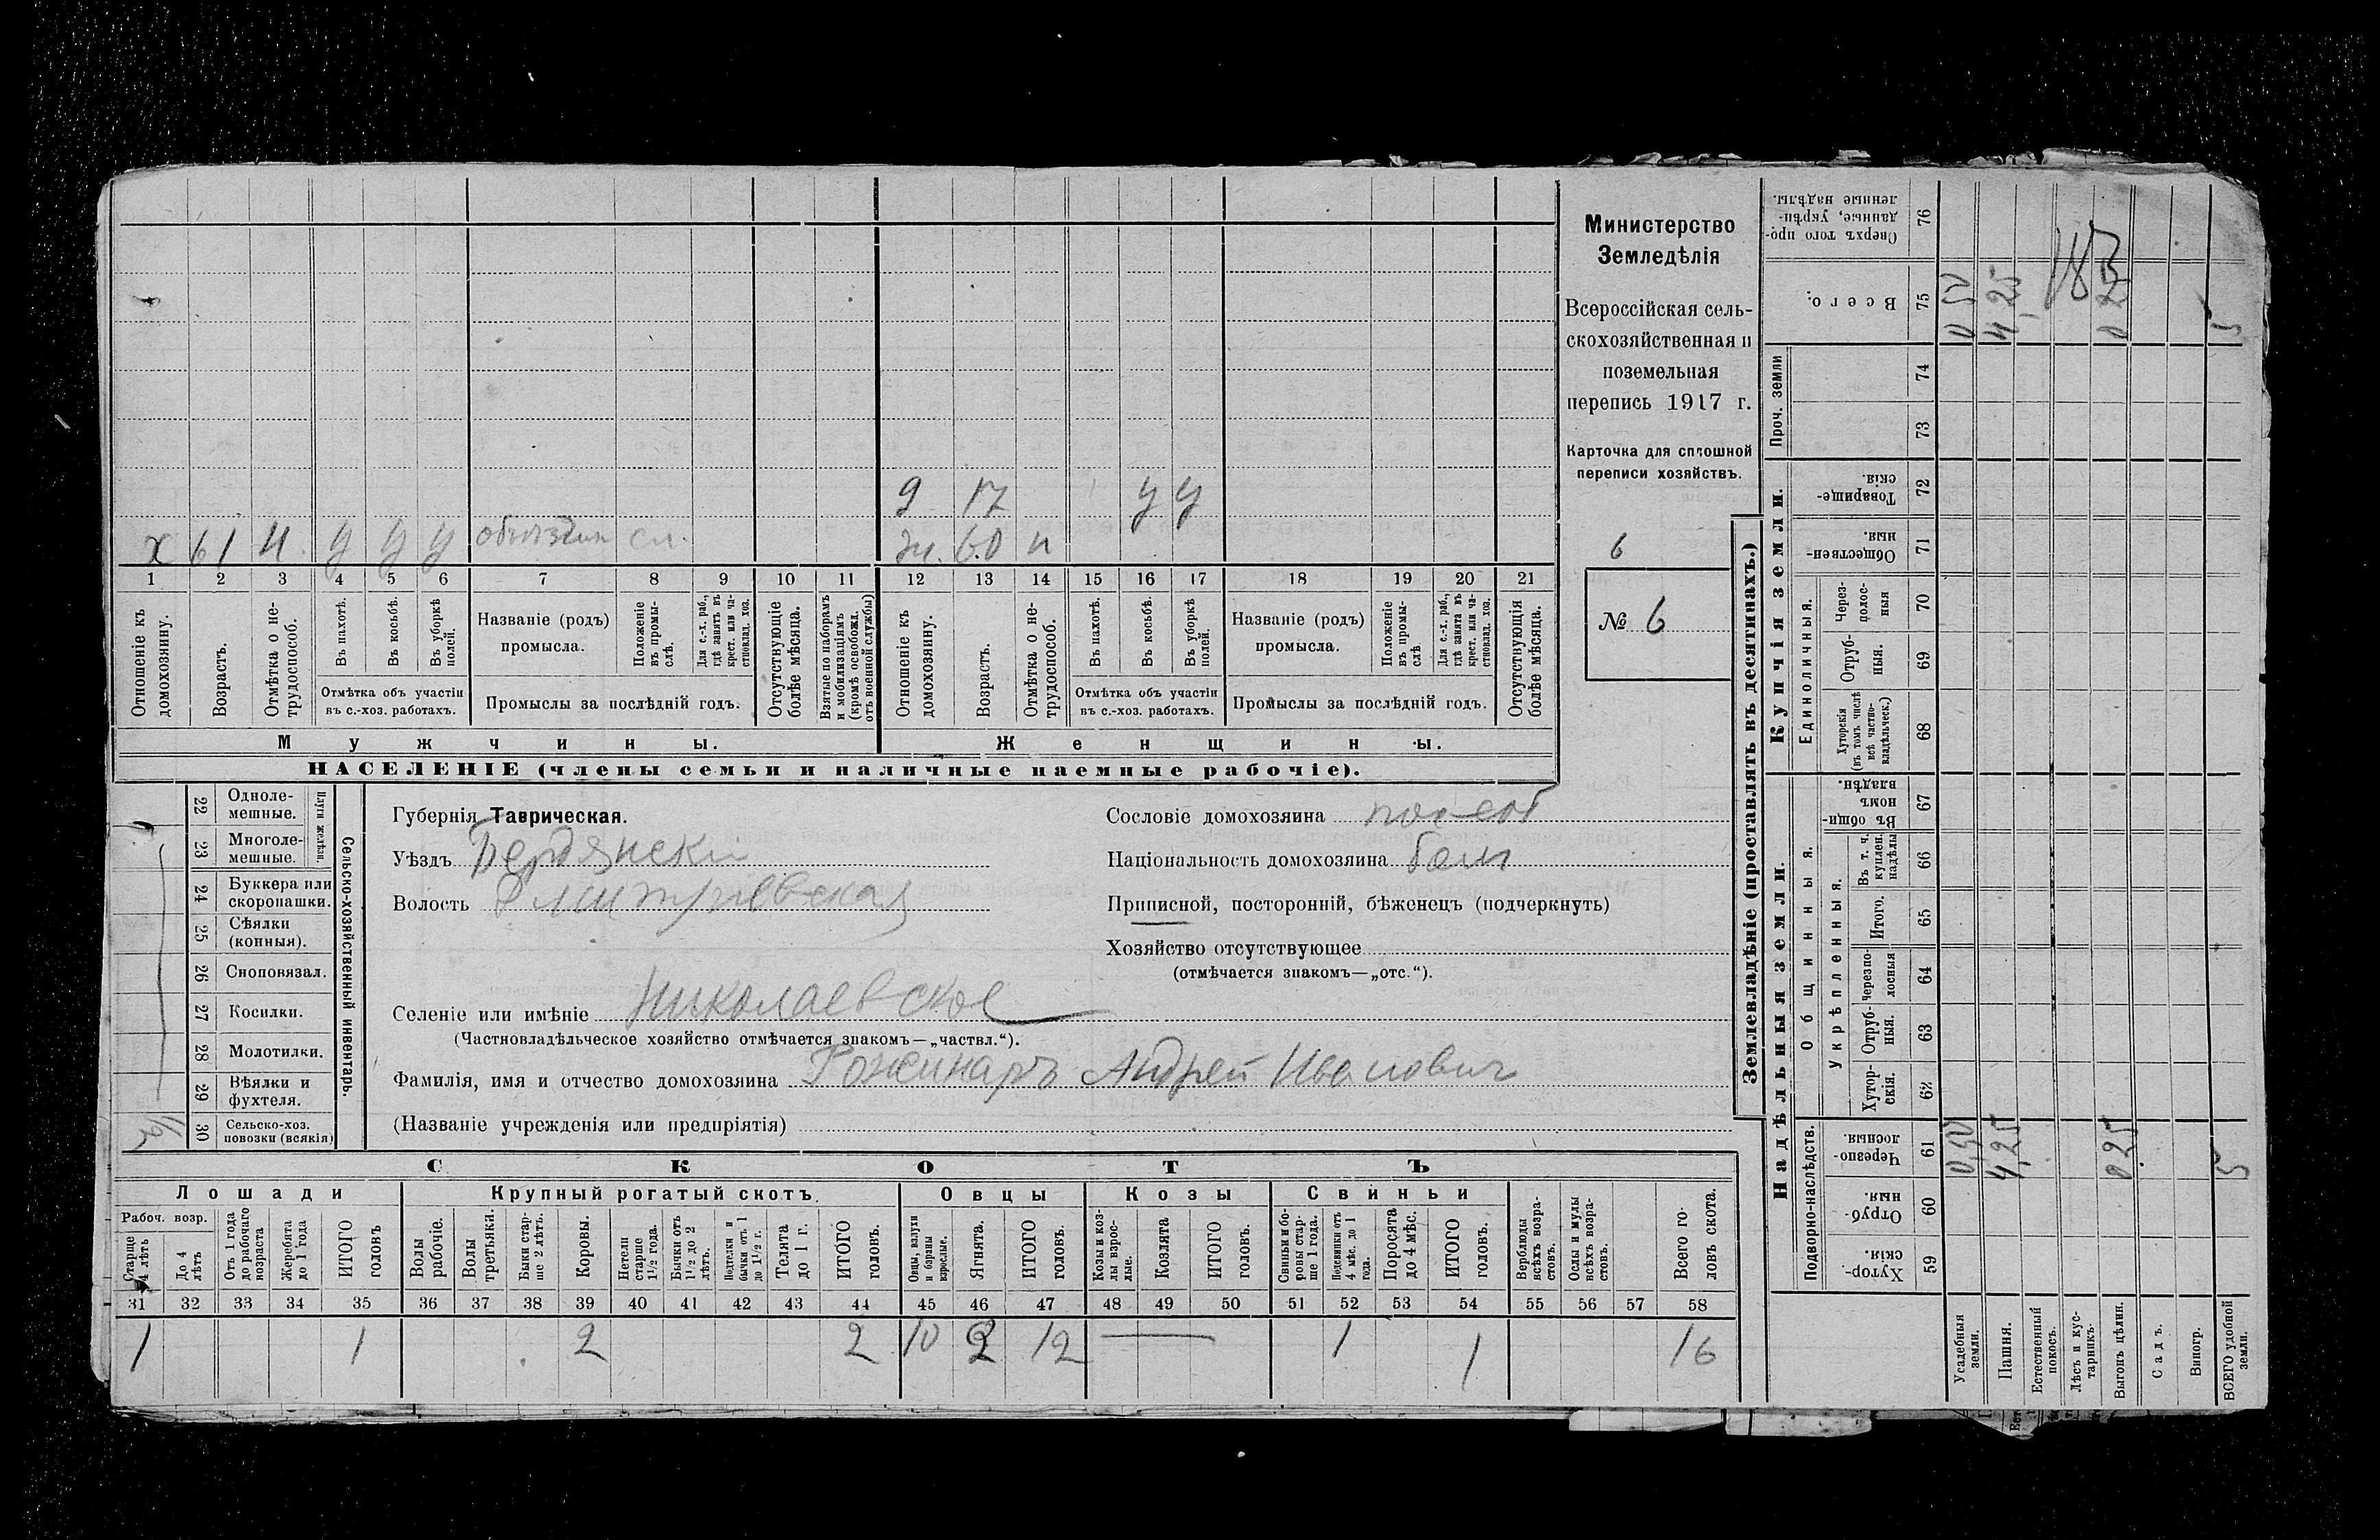 Министерство
Земледѣлія
Всероссійская сель-
скохозяйственная и
поземельная
перепись 1917 г.
Карточка для сплошной
переписи хозяйствъ.
6
№ 6
9 17 у у
х 61 н. у у у объѣздчик сл. ж. 60 н
1 2 3 4 5 6 7 8 9 10 11 12 13 14 15 16 17 18 19 20 21
Отношеніе къ домохозяину.
Возрастъ.
Отмѣтка о не-трудоспособ.
Въ пахотѣ.
Въ косьбѣ.
Въ уборкѣ полей.
Названіе (родъ) промысла.
Положеніе въ промы-слѣ.
Для с.-х. раб., гдѣ занятъ въ крест. или ча-стновлад. хоз.
Отсутствующіе болѣе мѣсяца.
Взятые по наборамъ и мобилизаціямъ (кромѣ освобожд. отъ военной службы)
Отношеніе къ домохозяину.
Возрастъ.
Отмѣтка о не-трудоспособ.
Въ пахотѣ.
Въ косьбѣ.
Въ уборкѣ полей.
Названіе (родъ) промысла.
Положеніе въ промы-слѣ
Для с.-х. раб., гдѣ занята въ крест. или ча-стновлад. хоз.
Отсутствующія болѣе мѣсяца.
Отмѣтка объ участіи въ с.-хоз. работахъ.
Промыслы за послѣдній годъ.
Отмѣтка объ участіи въ с.-хоз. работахъ.
Промыслы за послѣдній годъ.
Мужчины. Женщины.
НАСЕЛЕНІЕ (члены семьи и наличные наемные рабочіе).
Сельско-хозяйственный инвентарь.
Плуги желѣзн.
22 Одноле-мешные.
23 Многоле-мешные.
24 Буккера или скоропашки.
25 Сѣялки (конныя).
26 Сноповязал.
27 Косилки.
28 Молотилки.
29 Вѣялки и фухтеля.
30 Сельско-хоз. повозки (всякія)
Губернія Таврическая.
Уѣздъ Бердянски
Волость Дмитріевская
Селеніе или имѣніе Николаевское
(Частновладѣльческое хозяйство отмѣчается знакомъ—„частвл.“).
Фамилія, имя и отчество домохозяина Рожинаръ Андрей Иванович
(Названіе учрежденія или предпріятія)
Сословіе домохозяина посел
Національность домохозяина бол
Приписной, посторонній, бѣженецъ (подчеркнуть)
Хозяйство отсутствующее
(отмѣчается знакомъ—„отс.“).
СКОТЪ
Лошади Крупный рогатый скотъ. Овцы Козы Свиньи
Рабоч. возр.
Старше 4 лѣтъ
До 4 лѣтъ
Отъ 1 года до рабочаго возраста
Жеребята до 1 года
ИТОГО головъ
Волы рабочіе.
Волы третьяки.
Быки стар-ше 2 лѣтъ.
Коровы.
Нетели старше 1½ года.
Бычки отъ 1½ до 2 лѣтъ.
Подтелки и бычки отъ 1 до 1½ г.
Телята до 1 г.
ИТОГО головъ.
Овцы, валухи и бараны взрослые.
Ягнята.
ИТОГО головъ.
Козы и коз-лы взрос-лые.
Козлята
ИТОГО головъ.
Свиньи и бо-ровы стар-ше 1 года.
Подсвинки отъ 4 мѣс. до 1 года.
Поросята до 4 мѣс.
ИТОГО головъ.
Верблюды всѣхъ возра-стовъ.
Ослы и мулы всѣхъ возра-стовъ.
Всего го-ловъ скота.
31 32 33 34 35 36 37 38 39 40 41 42 43 44 45 46 47 48 49 50 51 52 53 54 55 56 57 58
1 1 2 2 10 2 12 1 1 16
Землевладѣніе (проставлять въ десятинахъ.)
Надѣльныя земли. Купчія земли. Проч. земли
Подворно-наслѣдств. Общинныя. Единоличныя.
Укрѣпленныя.
Хутор-скія. 59
Отруб-ныя. 60
Черезпо-лосныя. 61
Хутор-скія. 62
Отруб-ныя. 63
Черезпо-лосныя 64
Итого. 65
Въ т. ч. куплен. надѣлы 66
Въ общин-номъ владѣн. 67
Хуторскія (въ томъ числѣ всѣ частно-владѣльческ.) 68
Отруб-ныя. 69
Через-полос-ныя 70
Обществен-ныя. 71
Товарище-скія. 72
73
74
Всего. 75
Сверхъ того про-данные, укрѣп-ленные надѣлы. 76
Усадебныя земли. 0,50 0,50
Пашня. 4,25 4,25
Естественный покосъ.
Лѣсъ и кус-тарникъ.
Выгонъ цѣлин. 0,25 0,25
Садъ.
Виногр.
ВСЕГО удобной земли. 5 5
183